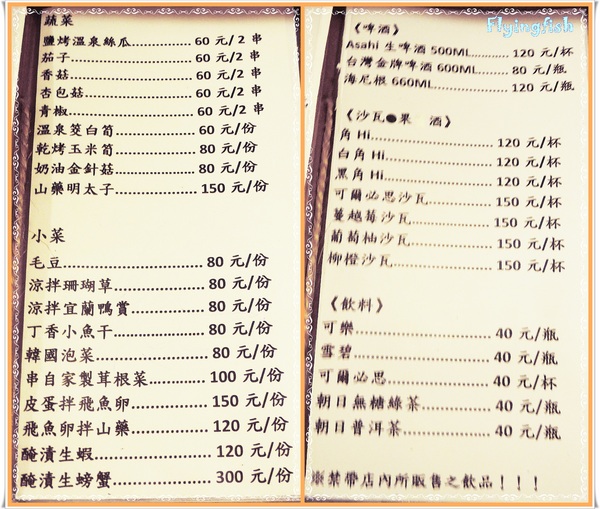 蔬菜
鹽烤溫泉絲瓜............ 60 元/2 串
茄子........................ 60 元/2 串
香菇........................ 60 元/2 串
杏包菇..................... 60 元/2 串
青椒........................ 60 元/2 串
溫泉筊白筍............... 60 元/份
乾烤玉米筍............... 80 元/份
奶油金針菇............... 80 元/份
山藥明太子............... 150 元/份
小菜
毛豆........................ 80 元/份
涼拌珊瑚草............... 80 元/份
涼拌宜蘭鴨賞............ 80 元/份
丁香小魚干............... 80 元/份
韓國泡菜.................. 80 元/份
串自家製茸根菜......... 100 元/份
皮蛋拌飛魚卵............ 150 元/份
飛魚卵拌山藥............ 120 元/份
醃漬生蝦.................. 120 元/份
醃漬生螃蟹............... 300 元/份
Flyingfish
《啤酒》
Asahi 生啤酒 500ML.......... 120 元/杯
台灣金牌啤酒 600ML......... 80 元/瓶
海尼根 660ML.................. 120 元/瓶
《沙瓦●果 酒》
角 Hi........................ 120 元/杯
白角 Hi..................... 120 元/杯
黑角 Hi..................... 120 元/杯
可爾必思沙瓦............ 150 元/杯
蔓越莓沙瓦............... 150 元/杯
葡萄柚沙瓦............... 150 元/杯
柳橙沙瓦.................. 150 元/杯
《飲料》
可樂........................ 40 元/瓶
雪碧........................ 40 元/瓶
可爾必思.................. 40 元/杯
朝日無糖綠茶............ 40 元/瓶
朝日普洱茶............... 40 元/瓶
※禁帶店內所販售之飲品！！！